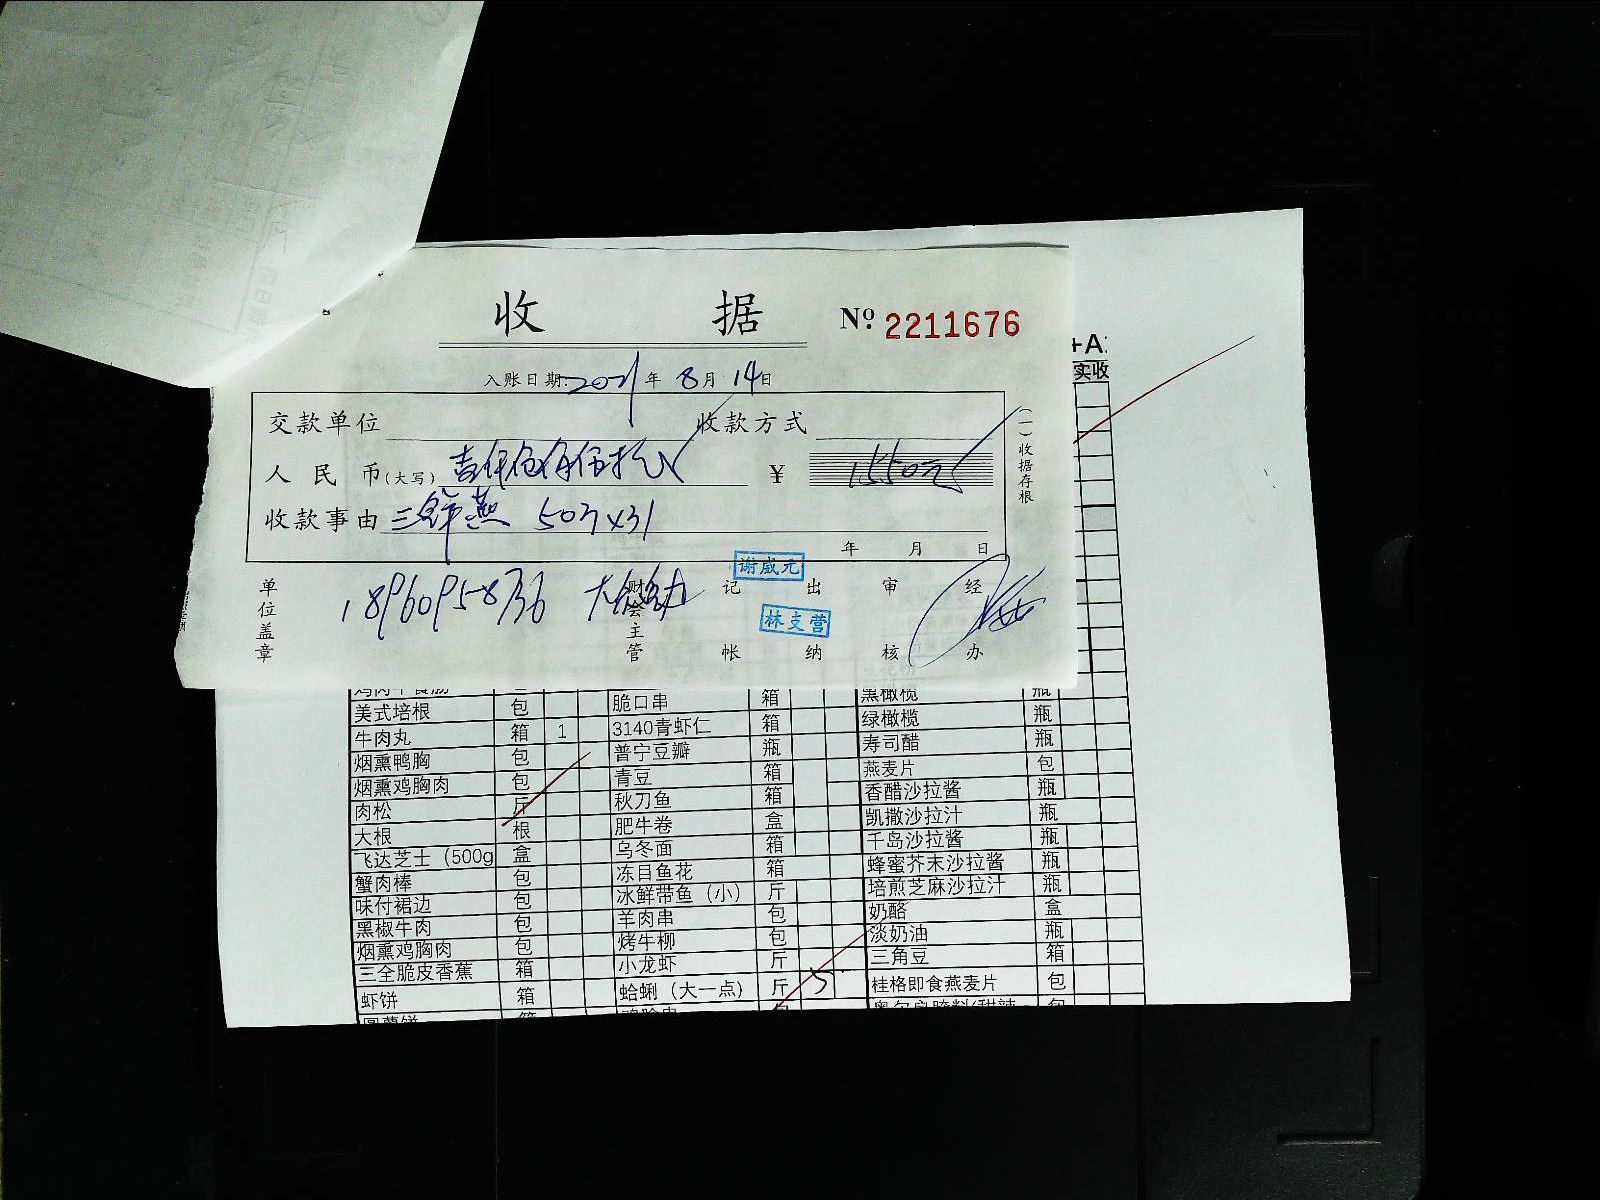 收 据 Nº 2211676
入账日期:2021年8月14日
交款单位 收款方式
人民币(大写) ¥ 1550元
收款事由 三鲜燕 50斤×31
年 月 日
(一)收据存根
单位盖章 18960958736 财会主管 记帐 出纳 审核 经办
谢威元
林支营
+A:
实收
美式培根 包 脆口串 箱 黑橄榄 瓶
牛肉丸 箱 1 3140青虾仁 箱 绿橄榄 瓶
烟熏鸭胸 包 普宁豆瓣 瓶 寿司醋 瓶
烟熏鸡胸肉 包 青豆 箱 燕麦片 包
肉松 斤 秋刀鱼 箱 香醋沙拉酱 瓶
大根 根 肥牛卷 盒 凯撒沙拉汁 瓶
飞达芝士（500g 盒 乌冬面 箱 千岛沙拉酱 瓶
蟹肉棒 包 冻目鱼花 箱 蜂蜜芥末沙拉酱 瓶
味付裙边 包 冰鲜带鱼（小） 斤 培煎芝麻沙拉汁 瓶
黑椒牛肉 包 羊肉串 包 奶酪 盒
烟熏鸡胸肉 包 烤牛柳 包 淡奶油 瓶
三全脆皮香蕉 箱 小龙虾 斤 三角豆 箱
虾饼 箱 蛤蜊（大一点） 斤 5 桂格即食燕麦片 包